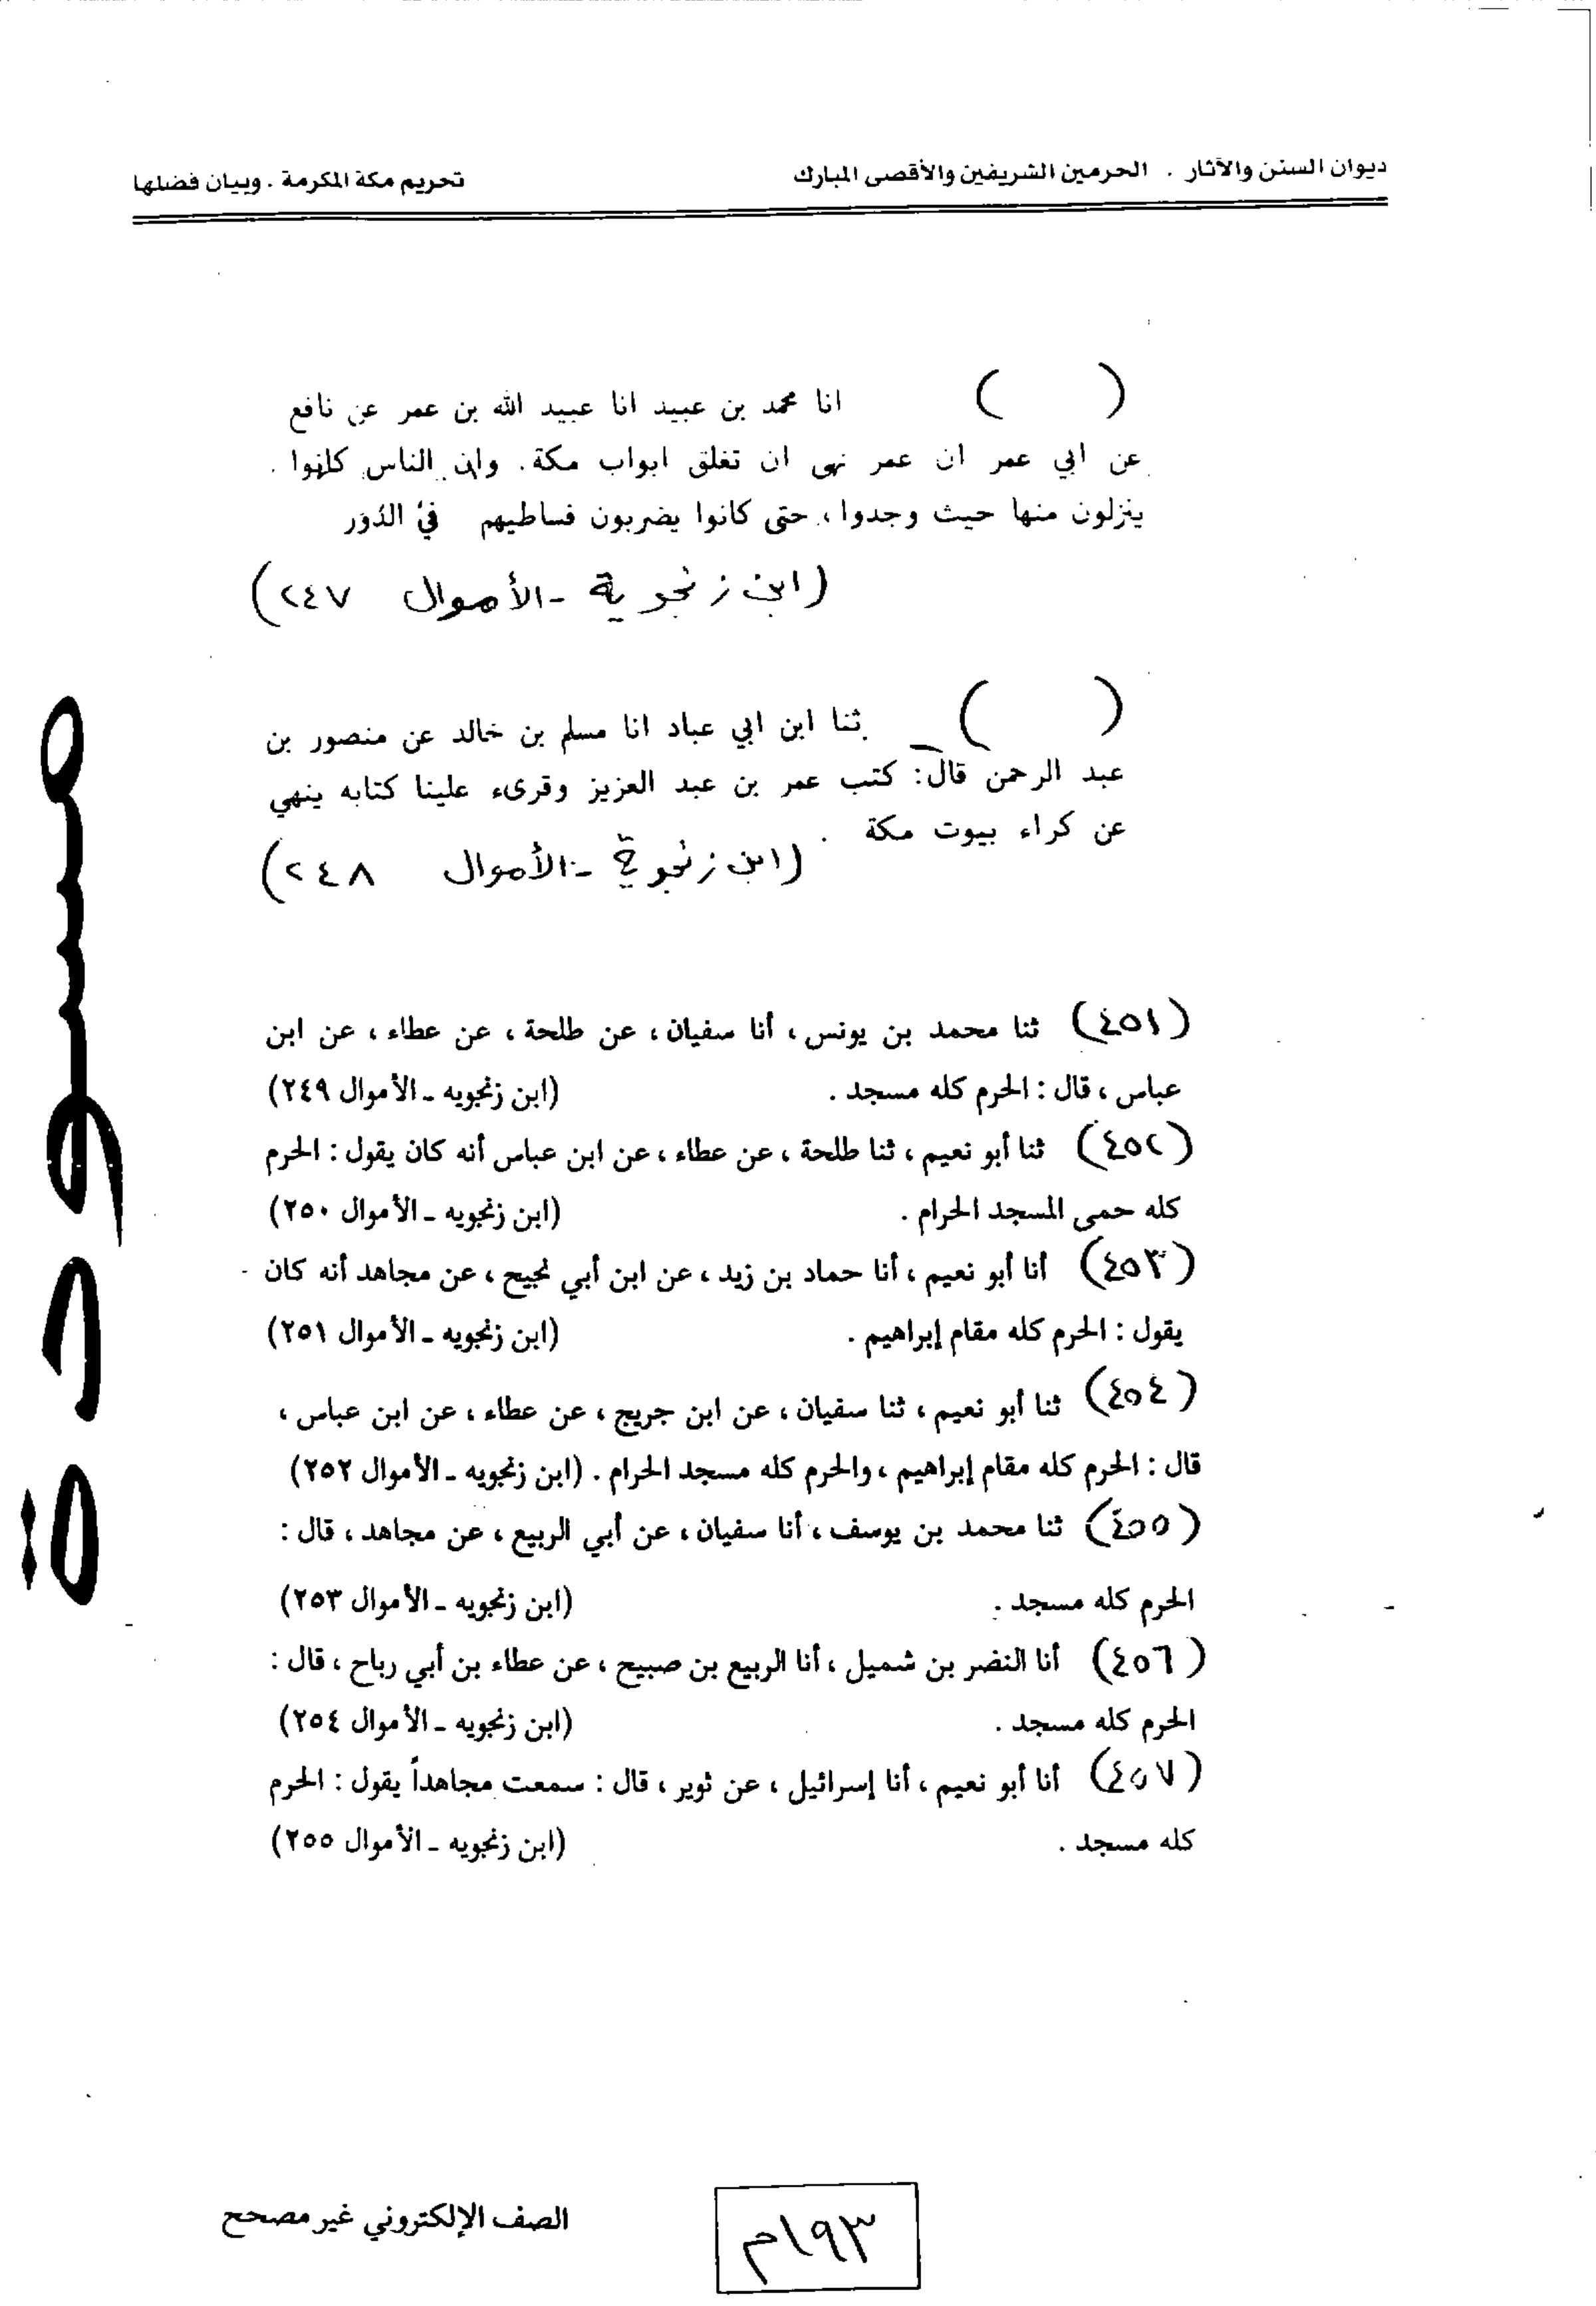 ديوان السنن والآثار . الحرمين الشريفين والأقصى المبارك
تحريم مكة المكرمة . وبيان فضلها
( ) انا محمد بن عبيد انا عبيد الله بن عمر عن نافع
عن ابي عمر ان عمر نهى ان تغلق ابواب مكة. وان الناس كانوا
ينزلون منها حيث وجدوا، حتى كانوا يضربون فساطيهم في الدُوَر
(ابن زنجوية - الأموال ٢٤٧)
( ) ثنا ابن ابي عباد انا مسلم بن خالد عن منصور بن
عبد الرحمن قال: كتب عمر بن عبد العزيز وقرىء علينا كتابه ينهي
عن كراء بيوت مكة .
(ابن زنجوية - الأموال ٢٤٨)
(٤٥١) ثنا محمد بن يونس ، أنا سفيان ، عن طلحة ، عن عطاء ، عن ابن
عباس ، قال : الحرم كله مسجد . (ابن زنجويه ـ الأموال ٢٤٩)
(٤٥٢) ثنا أبو نعيم ، ثنا طلحة ، عن عطاء ، عن ابن عباس أنه كان يقول : الحرم
كله حمى المسجد الحرام . (ابن زنجويه ـ الأموال ٢٥٠)
(٤٥٣) أنا أبو نعيم ، أنا حماد بن زيد ، عن ابن أبي نجيح ، عن مجاهد أنه كان
يقول : الحرم كله مقام إبراهيم . (ابن زنجويه ـ الأموال ٢٥١)
(٤٥٤) ثنا أبو نعيم ، ثنا سفيان ، عن ابن جريج ، عن عطاء ، عن ابن عباس ،
قال : الحرم كله مقام إبراهيم ، والحرم كله مسجد الحرام . (ابن زنجويه ـ الأموال ٢٥٢)
(٤٥٥) ثنا محمد بن يوسف ، أنا سفيان ، عن أبي الربيع ، عن مجاهد ، قال :
الحرم كله مسجد . (ابن زنجويه ـ الأموال ٢٥٣)
(٤٥٦) أنا النضر بن شميل ، أنا الربيع بن صبيح ، عن عطاء بن أبي رباح ، قال :
الحرم كله مسجد . (ابن زنجويه ـ الأموال ٢٥٤)
(٤٥٧) أنا أبو نعيم ، أنا إسرائيل ، عن ثوير ، قال : سمعت مجاهداً يقول : الحرم
كله مسجد . (ابن زنجويه ـ الأموال ٢٥٥)
مسودة
الصف الإلكتروني غير مصحح
١٩٣م